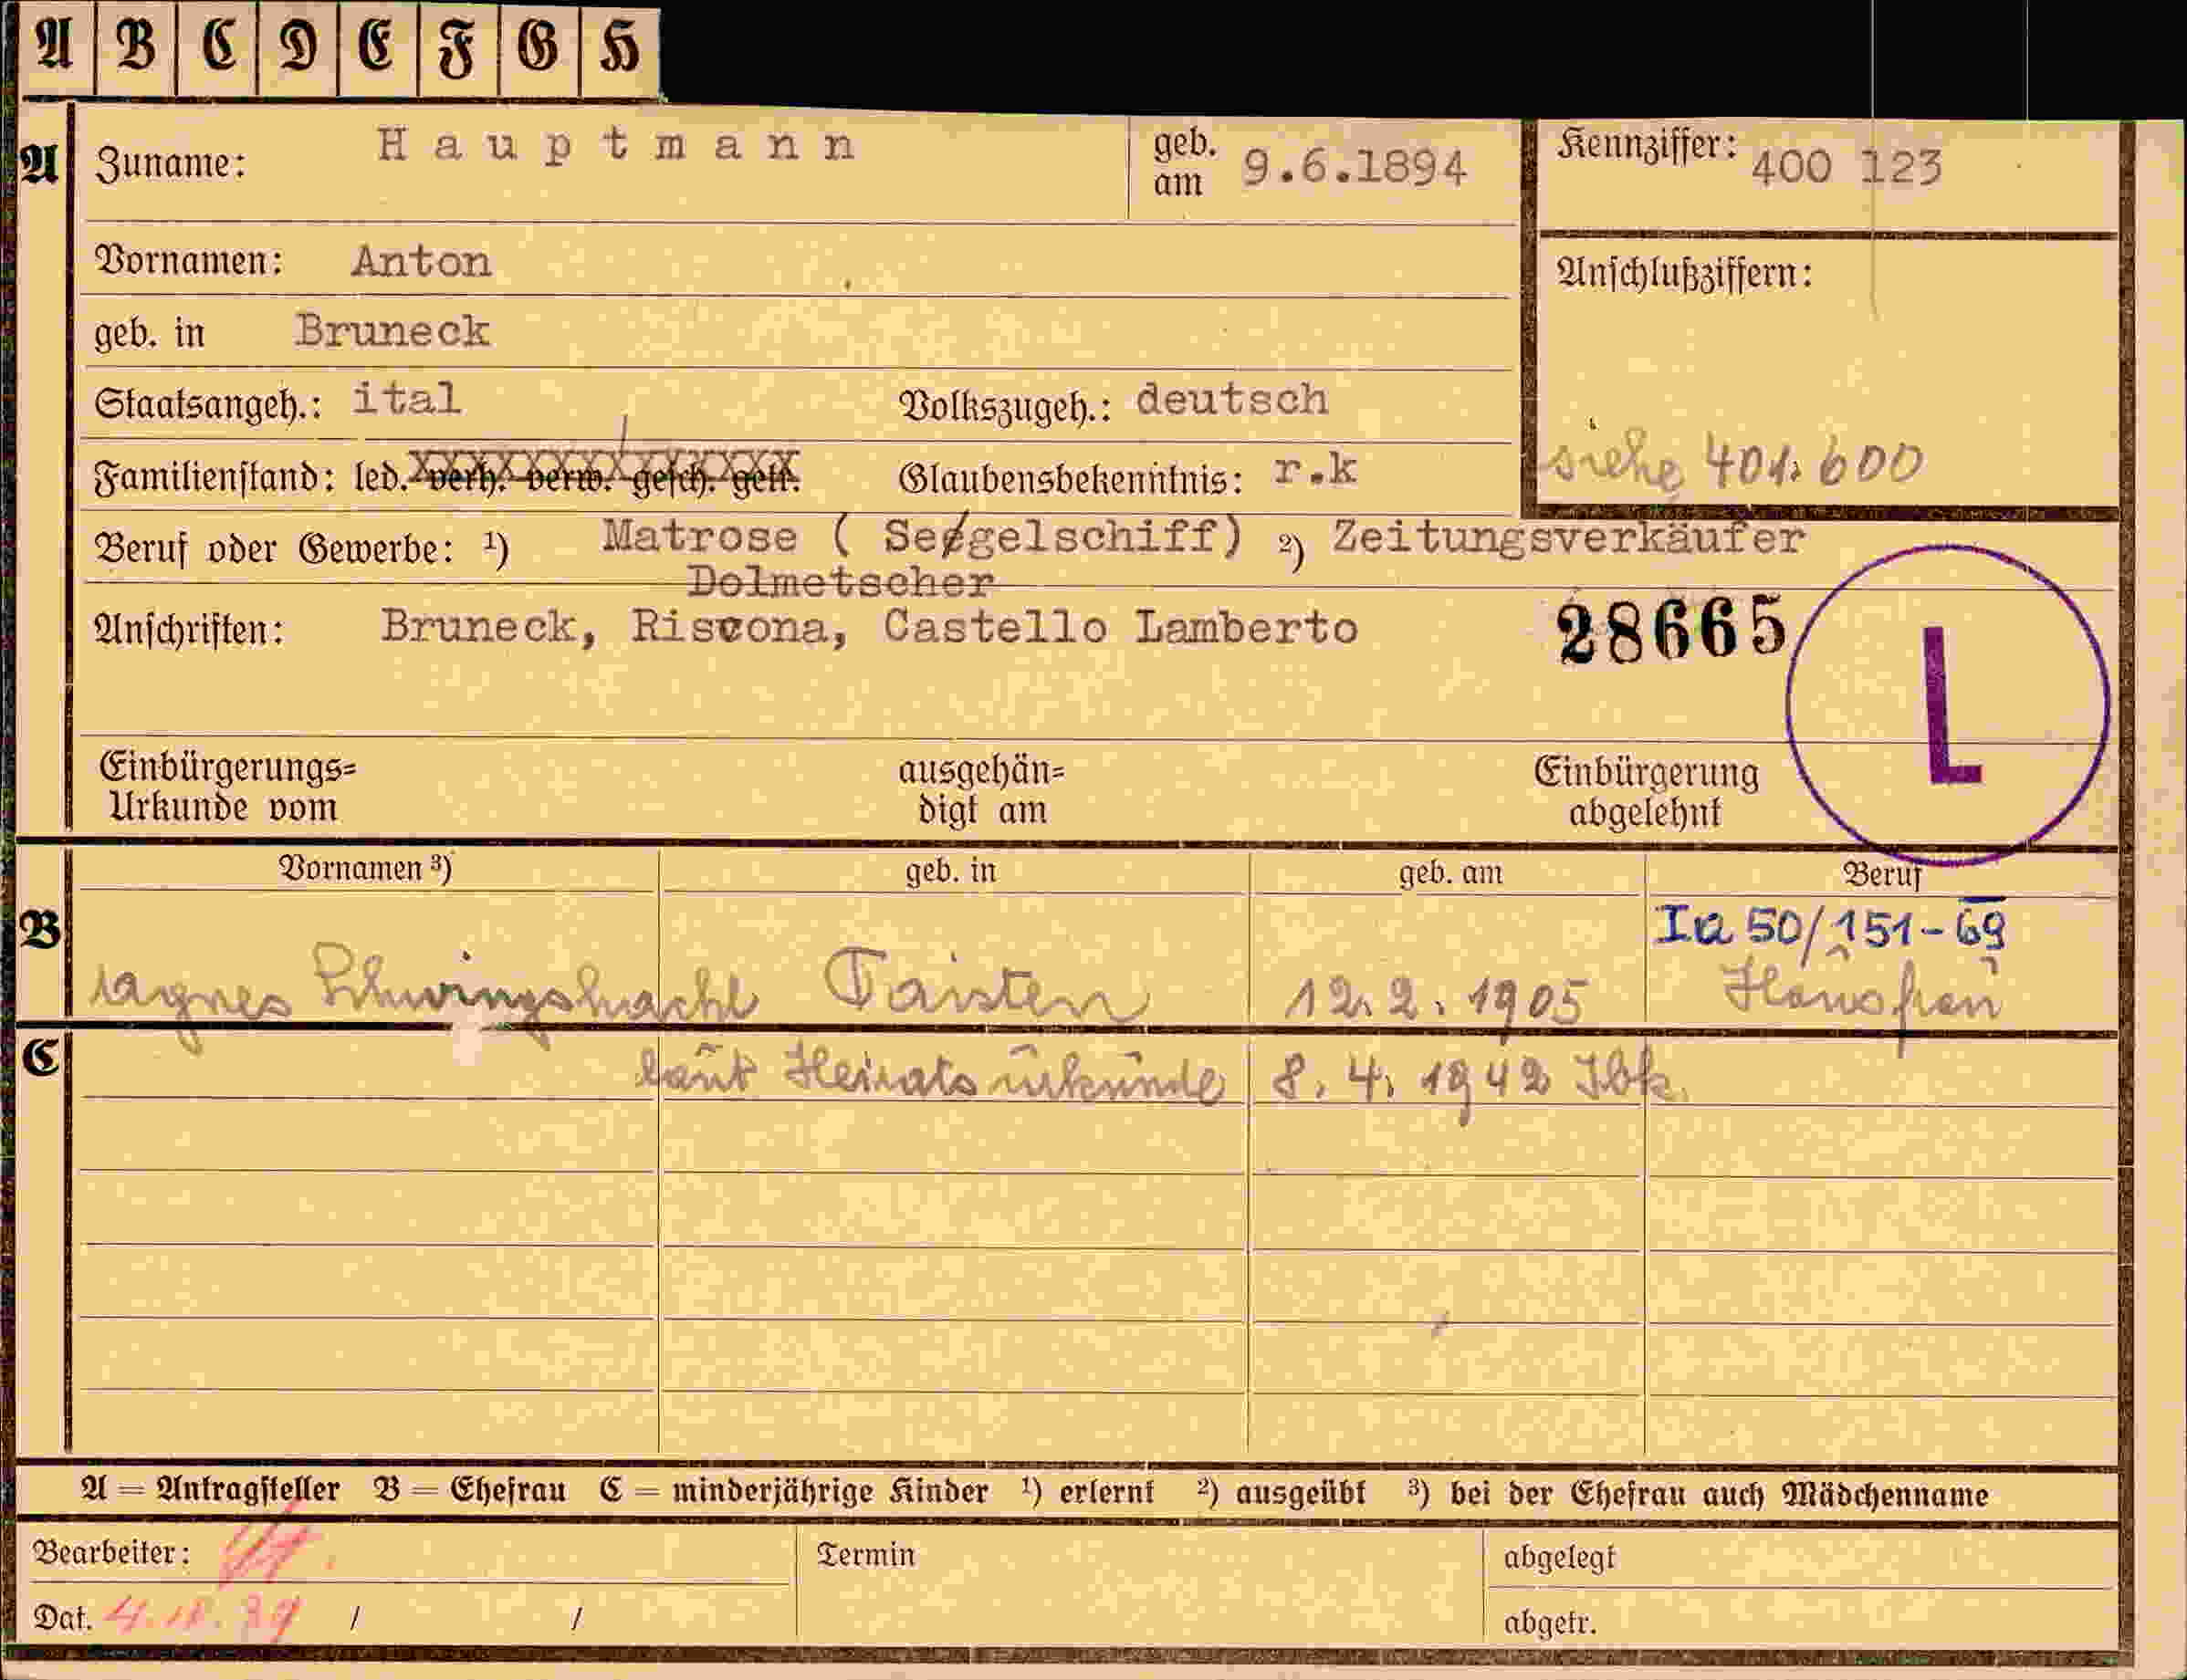 A B C D E F G H
A Zuname: Hauptmann geb. am 9.6.1894 Kennziffer: 400 123
Vornamen: Anton Anschlußziffern:
geb. in Bruneck
Staatsangeh.: ital Volkszugeh.: deutsch
siehe 401.600
Familienstand: led. verh. verw. gesch. getr. Glaubensbekenntnis: r.k
Beruf oder Gewerbe: ¹) Matrose ( Seegelschiff) ²) Zeitungsverkäufer
Dolmetscher
Anschriften: Bruneck, Riscona, Castello Lamberto 28665
L
Einbürgerungs= ausgehän= Einbürgerung
Urkunde vom digt am abgelehnt
Vornamen ³) geb. in geb. am Beruf
B Ia 50/151-69
Agnes Schwingshackl Taisten 12.2.1905 Hausfrau
C laut Heiratsurkunde 8.4.1942 Ibk.
A = Antragsteller B = Ehefrau C = minderjährige Kinder ¹) erlernt ²) ausgeübt ³) bei der Ehefrau auch Mädchenname
Bearbeiter: Termin abgelegt
Dat. / / abgetr.